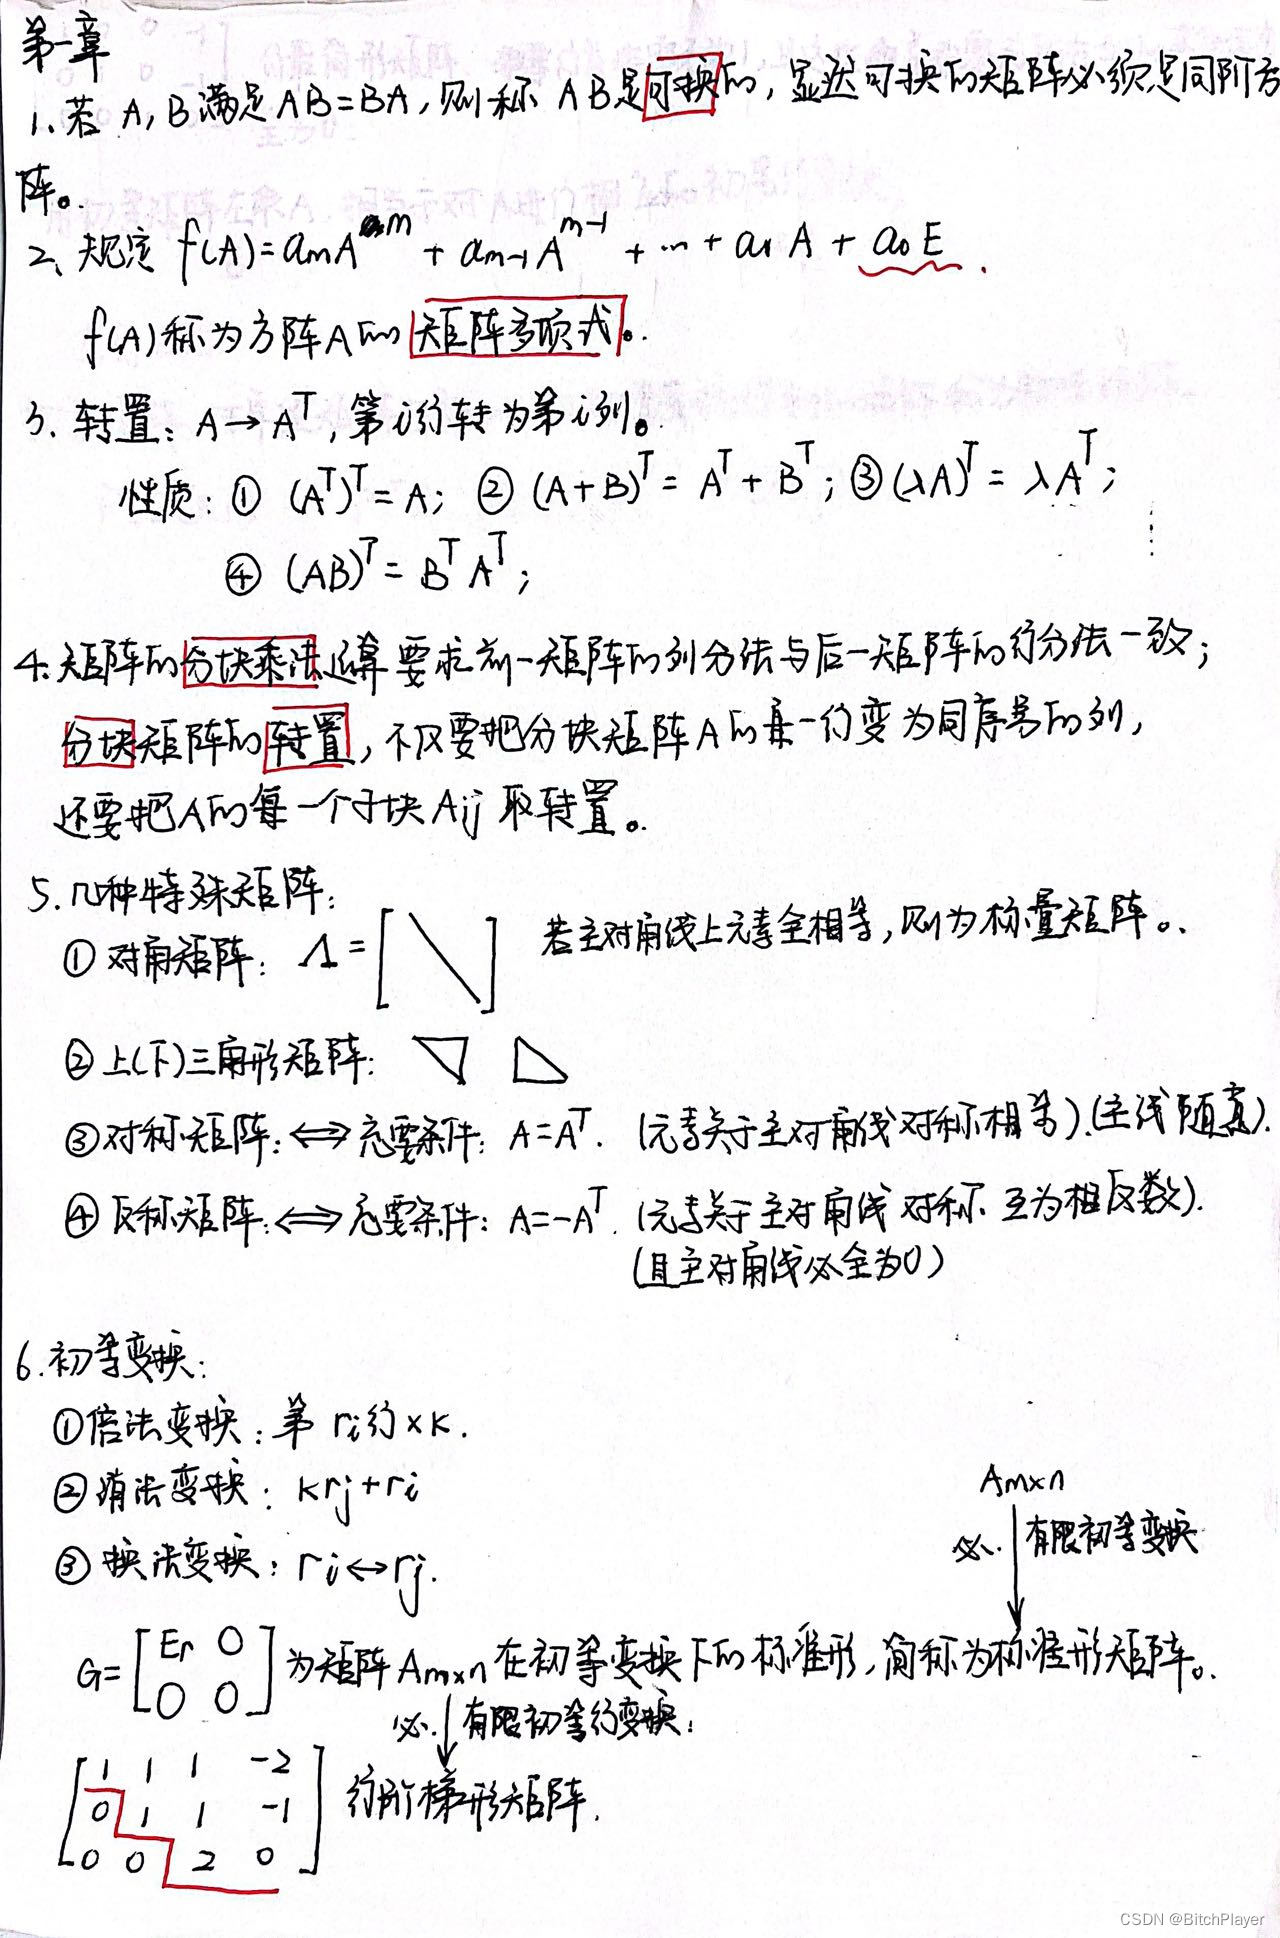 第一章
1. 若 A, B 满足 AB=BA, 则称 AB是可换的, 显然可换的矩阵必须是同阶方
阵。
2. 规定 f(A)=amA^m + am-1A^m-1 + … + a1A + a0E.
f(A)称为方阵A的矩阵多项式。
3. 转置: A→A^T, 第i行转为第i列。
性质: ① (A^T)^T=A; ② (A+B)^T=A^T+B^T; ③ (λA)^T=λA^T;
④ (AB)^T=B^T A^T;
4. 矩阵的分块乘法运算要求前一矩阵的列分法与后一矩阵的行分法一致;
分块矩阵的转置, 不仅要把分块矩阵A的每一行变为同序号的列,
还要把A的每一个子块Aij取转置。
5. 几种特殊矩阵:
① 对角矩阵: Λ=[\] 若主对角线上元素全相等, 则为标量矩阵。
② 上(下)三角形矩阵:
③ 对称矩阵: ⟺ 充要条件: A=A^T. (元素关于主对角线对称相等).(主线随意).
④ 反称矩阵: ⟺ 充要条件: A=-A^T. (元素关于主对角线对称互为相反数).
(且主对角线必全为0)
6. 初等变换:
① 倍法变换: 第ri行×k.
② 消法变换: krj+ri
③ 换法变换: ri↔rj.
Am×n
必. 有限初等变换
G= [Er 0
0 0] 为矩阵Am×n在初等变换下的标准形, 简称为标准形矩阵。
必. 有限初等行变换:
1 1 1 -2
0 1 1 -1 行阶梯形矩阵.
0 0 2 0
CSDN @BitchPlayer